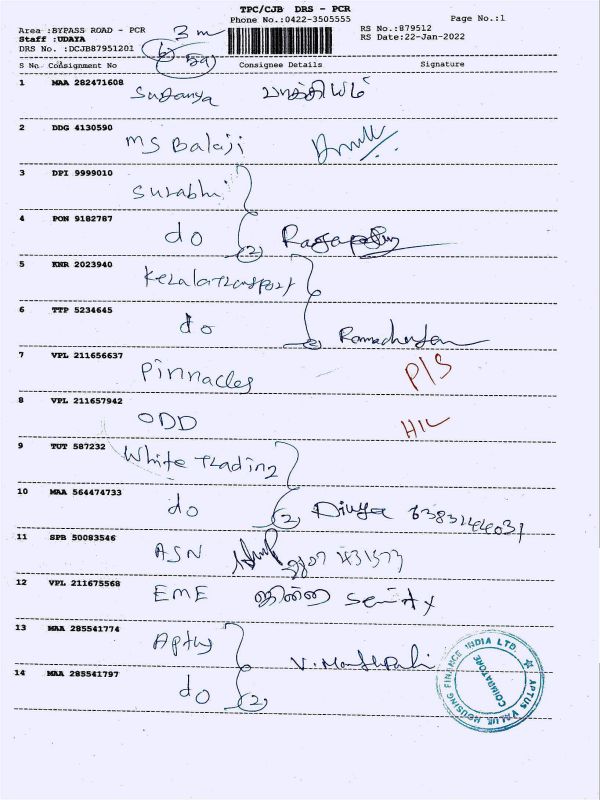 TPC/CJB DRS - PCR
Phone No.:0422-3505555
Page No.:1
Area :BYPASS ROAD - PCR
3m
RS No.:879512
Staff :UDAYA
RS Date:22-Jan-2022
DRS No. :DCJB87951201
S No Consignment No Consignee Details Signature
1 MAA 282471608
Sudanya
2 DDG 4130590
MS Balaji
3 DPI 9999010
Surabhi
4 PON 9182787
do 2
5 KNR 2023940
Kerala Transport
6 TTP 5234645
do 2 Ramachandan
7 VPL 211656637
Pinnacles P/S
8 VPL 211657942
ODD HIL
9 TUT 587232
White Trading
10 MAA 564474733
do 2 Divya 6383244031
11 SPB 50083546
ASN
12 VPL 211675568
EME
13 MAA 285541774
Aptus
14 MAA 285541797
do 2
APTUS VALUE HOUSING FINANCE INDIA LTD.
COIMBATORE